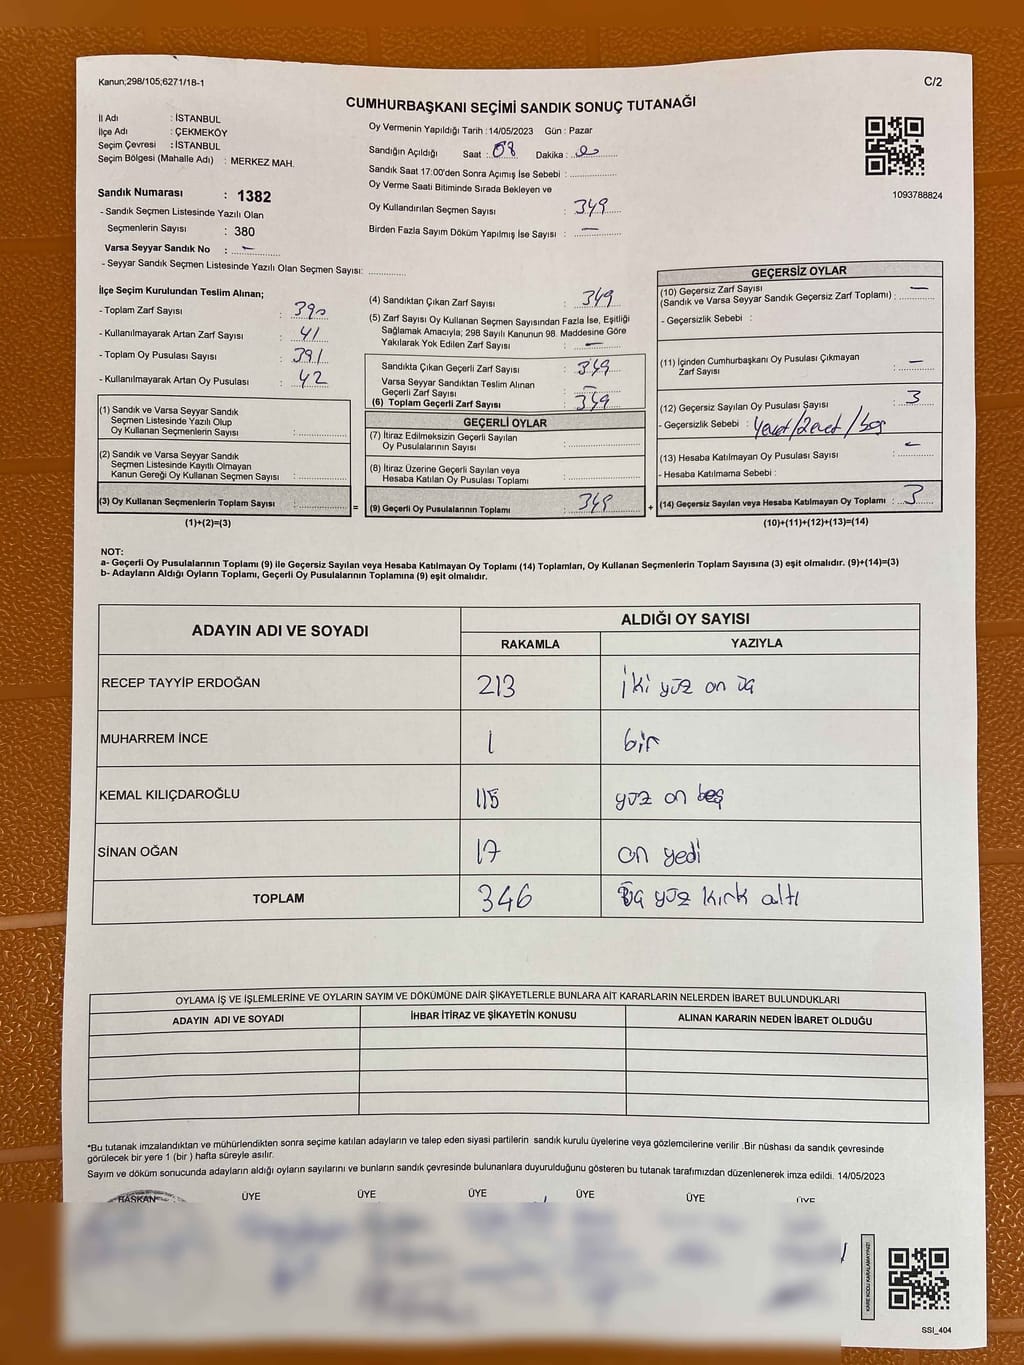 Kanun;298/105;6271/18-1
C/2
CUMHURBAŞKANI SEÇİMİ SANDIK SONUÇ TUTANAĞI
İl Adı : İSTANBUL
İlçe Adı : ÇEKMEKÖY
Seçim Çevresi : İSTANBUL
Seçim Bölgesi (Mahalle Adı) : MERKEZ MAH.
Oy Vermenin Yapıldığı Tarih : 14/05/2023 Gün : Pazar
Sandığın Açıldığı Saat : 08 Dakika :
Sandık Saat 17:00'den Sonra Açımış İse Sebebi :
Oy Verme Saati Bitiminde Sırada Bekleyen ve
Oy Kullandırılan Seçmen Sayısı : 349
Birden Fazla Sayım Döküm Yapılmış İse Sayısı : —
1093788824
Sandık Numarası : 1382
- Sandık Seçmen Listesinde Yazılı Olan
Seçmenlerin Sayısı : 380
Varsa Seyyar Sandık No : —
- Seyyar Sandık Seçmen Listesinde Yazılı Olan Seçmen Sayısı:
İlçe Seçim Kurulundan Teslim Alınan;
- Toplam Zarf Sayısı : 390
- Kullanılmayarak Artan Zarf Sayısı : 41
- Toplam Oy Pusulası Sayısı : 391
- Kullanılmayarak Artan Oy Pusulası : 42
(1) Sandık ve Varsa Seyyar Sandık
Seçmen Listesinde Yazılı Olup
Oy Kullanan Seçmenlerin Sayısı :
(2) Sandık ve Varsa Seyyar Sandık
Seçmen Listesinde Kayıtlı Olmayan
Kanun Gereği Oy Kullanan Seçmen Sayısı :
(3) Oy Kullanan Seçmenlerin Toplam Sayısı :
(1)+(2)=(3)
(4) Sandıktan Çıkan Zarf Sayısı : 349
(5) Zarf Sayısı Oy Kullanan Seçmen Sayısından Fazla İse, Eşitliği
Sağlamak Amacıyla; 298 Sayılı Kanunun 98. Maddesine Göre
Yakılarak Yok Edilen Zarf Sayısı : —
Sandıkta Çıkan Geçerli Zarf Sayısı : 349
Varsa Seyyar Sandıktan Teslim Alınan
Geçerli Zarf Sayısı : —
(6) Toplam Geçerli Zarf Sayısı : 349
GEÇERLİ OYLAR
(7) İtiraz Edilmeksizin Geçerli Sayılan
Oy Pusulalarının Sayısı :
(8) İtiraz Üzerine Geçerli Sayılan veya
Hesaba Katılan Oy Pusulası Toplamı :
= (9) Geçerli Oy Pusulalarının Toplamı : 349
GEÇERSİZ OYLAR
(10) Geçersiz Zarf Sayısı
(Sandık ve Varsa Seyyar Sandık Geçersiz Zarf Toplamı) : —
- Geçersizlik Sebebi :
(11) İçinden Cumhurbaşkanı Oy Pusulası Çıkmayan
Zarf Sayısı : —
(12) Geçersiz Sayılan Oy Pusulası Sayısı : 3
- Geçersizlik Sebebi : 4evet/2evet/boş
(13) Hesaba Katılmayan Oy Pusulası Sayısı : —
- Hesaba Katılmama Sebebi :
+ (14) Geçersiz Sayılan veya Hesaba Katılmayan Oy Toplamı : 3
(10)+(11)+(12)+(13)=(14)
NOT:
a- Geçerli Oy Pusulalarının Toplamı (9) ile Geçersiz Sayılan veya Hesaba Katılmayan Oy Toplamı (14) Toplamları, Oy Kullanan Seçmenlerin Toplam Sayısına (3) eşit olmalıdır. (9)+(14)=(3)
b- Adayların Aldığı Oyların Toplamı, Geçerli Oy Pusulalarının Toplamına (9) eşit olmalıdır.
ADAYIN ADI VE SOYADI
ALDIĞI OY SAYISI
RAKAMLA YAZIYLA
RECEP TAYYİP ERDOĞAN 213 iki yüz on üç
MUHARREM İNCE 1 bir
KEMAL KILIÇDAROĞLU 115 yüz on beş
SİNAN OĞAN 17 on yedi
TOPLAM 346 üç yüz kırk altı
OYLAMA İŞ VE İŞLEMLERİNE VE OYLARIN SAYIM VE DÖKÜMÜNE DAİR ŞİKAYETLERLE BUNLARA AİT KARARLARIN NELERDEN İBARET BULUNDUKLARI
ADAYIN ADI VE SOYADI İHBAR İTİRAZ VE ŞİKAYETİN KONUSU ALINAN KARARIN NEDEN İBARET OLDUĞU
*Bu tutanak imzalandıktan ve mühürlendikten sonra seçime katılan adayların ve talep eden siyasi partilerin sandık kurulu üyelerine veya gözlemcilerine verilir .Bir nüshası da sandık çevresinde
görülecek bir yere 1 (bir ) hafta süreyle asılır.
Sayım ve döküm sonucunda adayların aldığı oyların sayılarını ve bunların sandık çevresinde bulunanlara duyurulduğunu gösteren bu tutanak tarafımızdan düzenlenerek imza edildi. 14/05/2023
BAŞKAN ÜYE ÜYE ÜYE ÜYE ÜYE ÜYE
KAREKODU KARALAMAYINIZ!
SSI_404